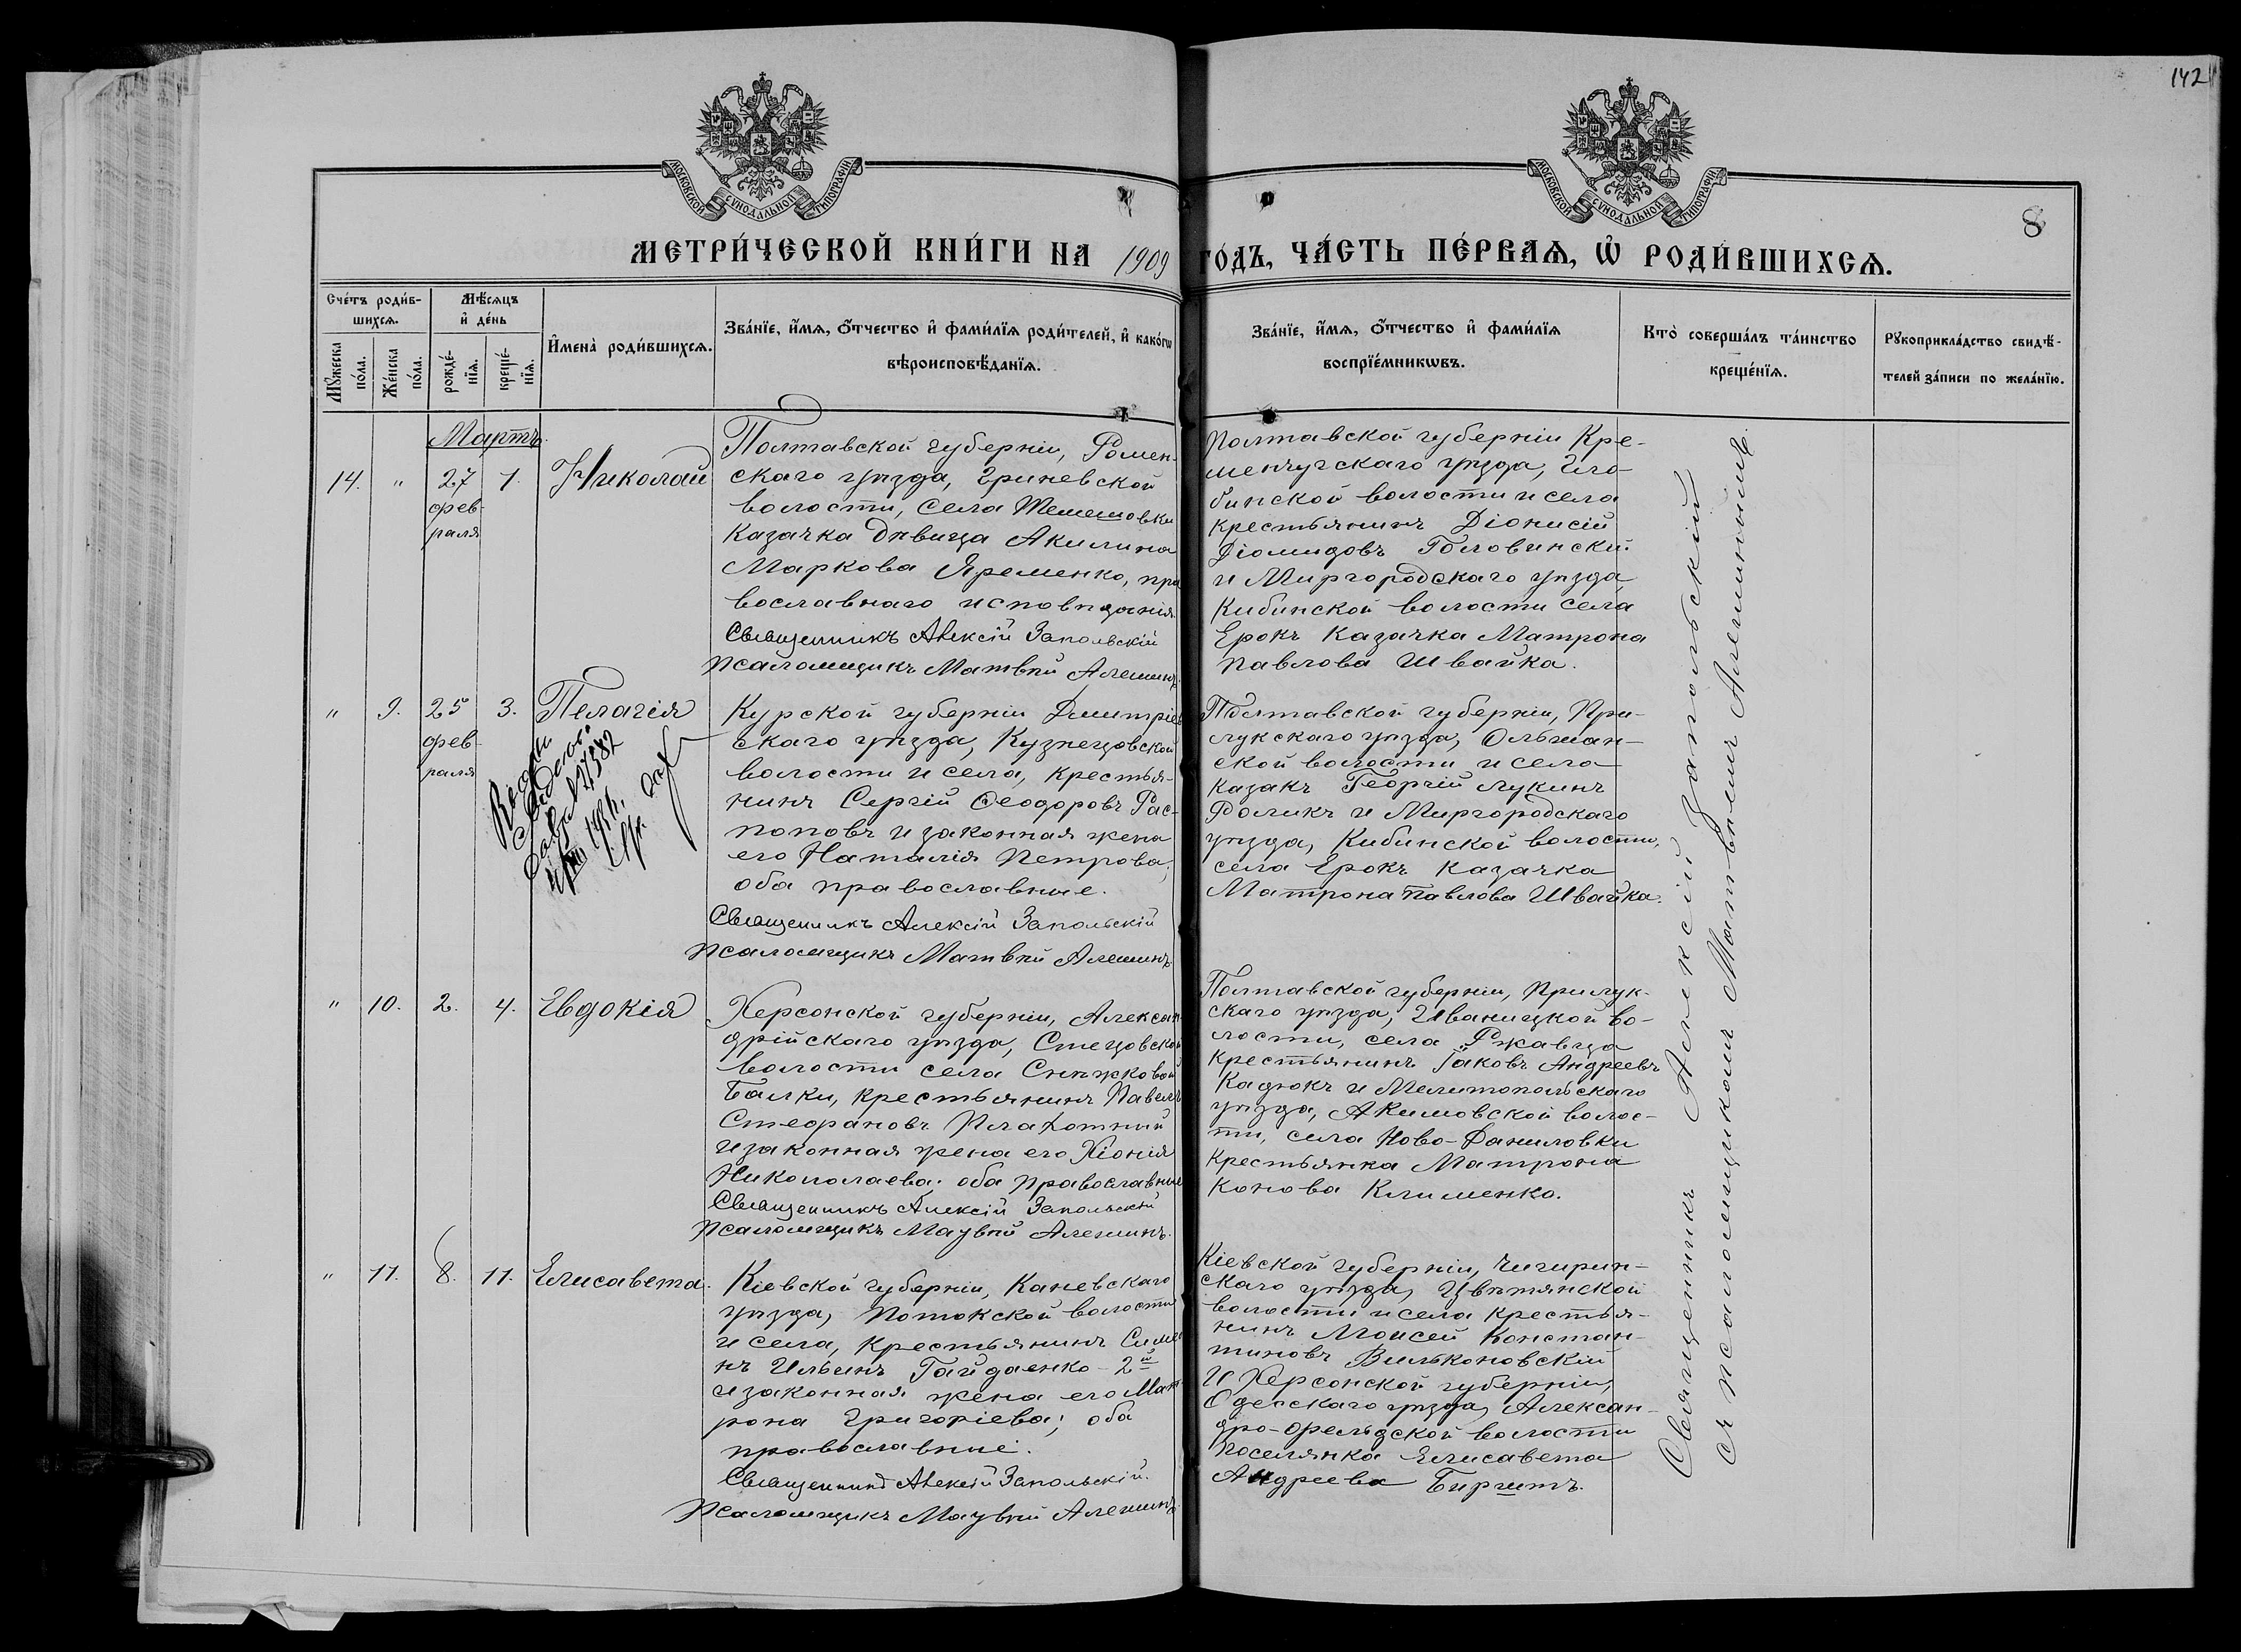 142
МОСКОВСКОЙ СУНОДАЛЬНОЙ ТИПОГРАФІИ
МОСКОВСКОЙ СУНОДАЛЬНОЙ ТИПОГРАФІИ
8
МЕТРИ́ЧЕСКОЙ КНИ́ГИ НА 1909 ГО́ДЪ, ЧА́СТЬ ПЕ́РВАѦ, Ѡ҆ РОДИ́ВШИХСѦ.
Сче́тъ роди́в-
шихсѧ.
Мꙋ́жеска по́ла.
Же́нска по́ла.
Мѣ́сѧцъ
и҆ де́нь
рожде́-
нїѧ.
креще́-
нїѧ.
И҆мена̀ роди́вшихсѧ.
Зва́нїе, и҆́мѧ, ѻ҆́тчество и҆ фами́лїѧ роди́телей, и҆ како́гѡ
вѣроисповѣ́данїѧ.
Зва́нїе, и҆́мѧ, ѻ҆́тчество и҆ фами́лїѧ
воспрїе́мникѡвъ.
Кто̀ соверша́лъ та́инство
креще́нїѧ.
Рꙋкоприкла́дство свидѣ́-
телей за́писи по жела́нїю.
Мартъ.
14. " 27 фев-
раля 1. Николай
Полтавской губерніи, Ромен-
скаго уѣзда, Гриневской
волости, села Темешовки
Казачка дѣвица Акилина
Маркова Яременко, пра
вославнаго исповѣданія.
Священникъ Алексій Запольскій
Псаломщикъ Матвѣй Алешинъ.
Полтавской губерніи Кре-
менчугскаго уѣзда, Гло-
бинской волости и села
крестьянинъ Діонисій
Діомидовъ Головинскій
и Миргородскаго уѣзда
Кибинской волости села
Ерокъ казачка Матрона
Павлова Швайка.
" 9. 25 фев-
раля 3. Пелагія
Курской губерніи Дмитріев
скаго уѣзда, Кузнецовской
волости и села, крестья-
нинъ Сергій Ѳеодоровъ Рас-
поповъ и законная жена
его Наталія Петрова;
оба православные.
Священникъ Алексій Запольскій
Псаломщикъ Матвѣй Алешинъ
Полтавской губерніи, При-
лукскаго уѣзда, Ольшан-
ской волости и села
казакъ Георгій Лукинъ
Фоликъ и Миргородскаго
уѣзда, Кибинской волости,
села Ерокъ казачка
Матрона Павлова Швайка.
" 10. 2. 4. Евдокія
Херсонской губерніи, Алексан
дрійскаго уѣзда, Стецовской
волости села Снѣжковой
Балки, крестьянинъ Павелъ
Стефановъ Плахотний
и законная жена его Хіонія
Никополаева; оба православные
Священникъ Алексій Запольскій
Псаломщикъ Матвѣй Алешинъ.
Полтавской губерніи, Прилук-
скаго уѣзда, Иваницкой во-
лости, села Ржавца
крестьянинъ Іаковъ Андреевъ
Кадюкъ и Мелитопольскаго
уѣзда, Акимовской волос-
ти, села Ново-Даниловки
крестьянка Матрона
Конова Клименко.
" 11. 8. 11. Елисавета.
Кіевской губерніи, Каневскаго
уѣзда, Потокской волости
и села, крестьянинъ Симео
нъ Ильинъ Гайдаенко-2й
и законная жена его Мат
рона Григоріева; оба
православные.
Священникъ Алексій Запольскій.
Псаломщикъ Матвѣй Алешинъ
Кіевской губерніи, Чигирин-
скаго уѣзда, Цвѣтянской
волости и села крестья-
нинъ Моисей Констан-
тиновъ Вильконовскій
И Херсонской губерніи,
Одесскаго уѣзда, Алексан-
дро-фельдской волости
поселянка Елисавета
Андреева Биргитъ.
Священникъ Алексій Запольскій
съ псаломщикомъ Матвѣемъ Алешинымъ.